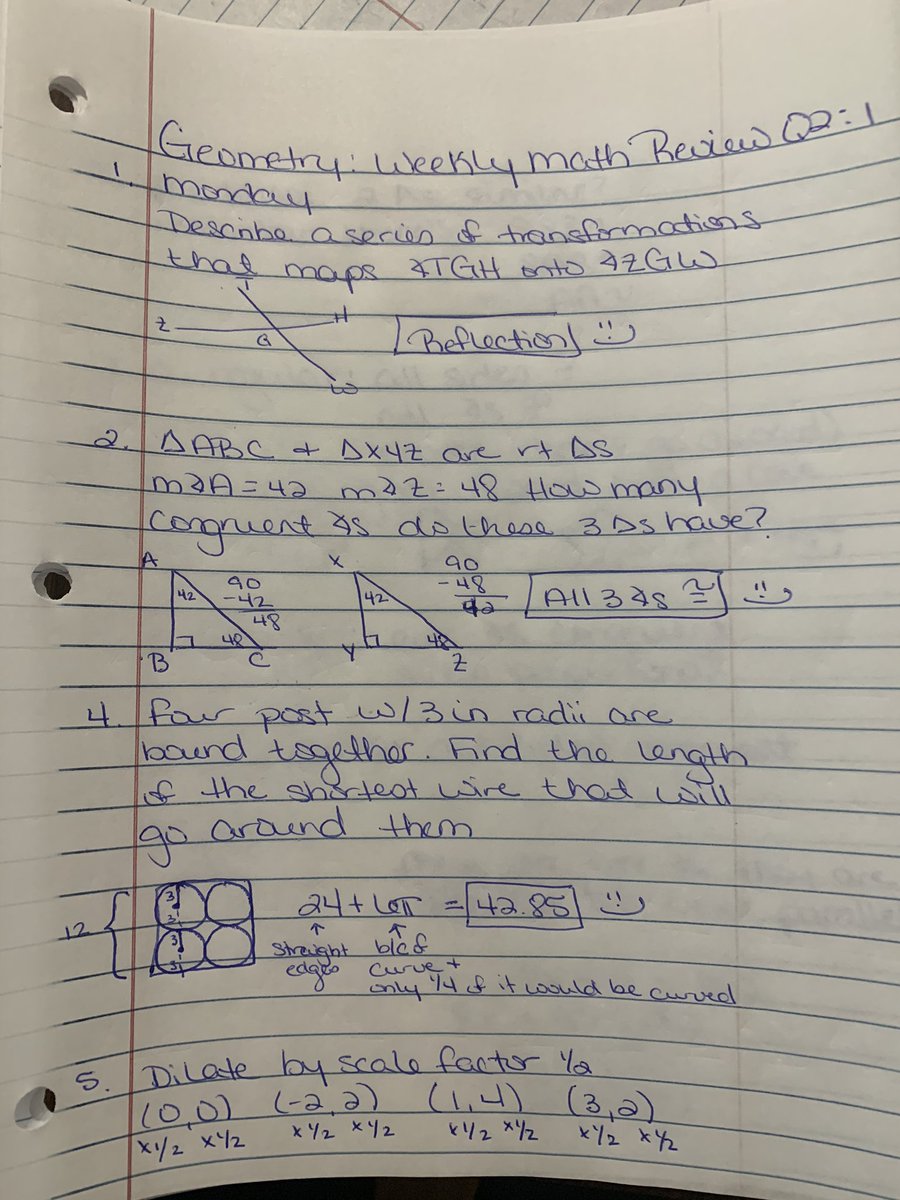 Geometry: Weekly Math Review Q2:1
1. Monday
Describe a series of transformations
that maps ∡TGH onto ∡ZGW
T
Z G H
W
Reflection
2. ΔABC + ΔXYZ are rt Δs
m∡A = 42 m∡Z = 48 How many
congruent ∡s do these 3 Δs have?
A 90 -42 48
42 48
B C
X 90 -48 42
42 48
Y Z
All 3 ∡s ≅
4. Four post w/ 3 in radii are
bound together. Find the length
of the shortest wire that will
go around them
12 3 3 3 3
24 + 6π = 42.85
↑ ↑
straight b/c of
edges curve +
only 1/4 of it would be curved
5. Dilate by scale factor 1/2
(0,0) (-2,2) (1,4) (3,2)
x1/2 x1/2 x1/2 x1/2 x1/2 x1/2 x1/2 x1/2